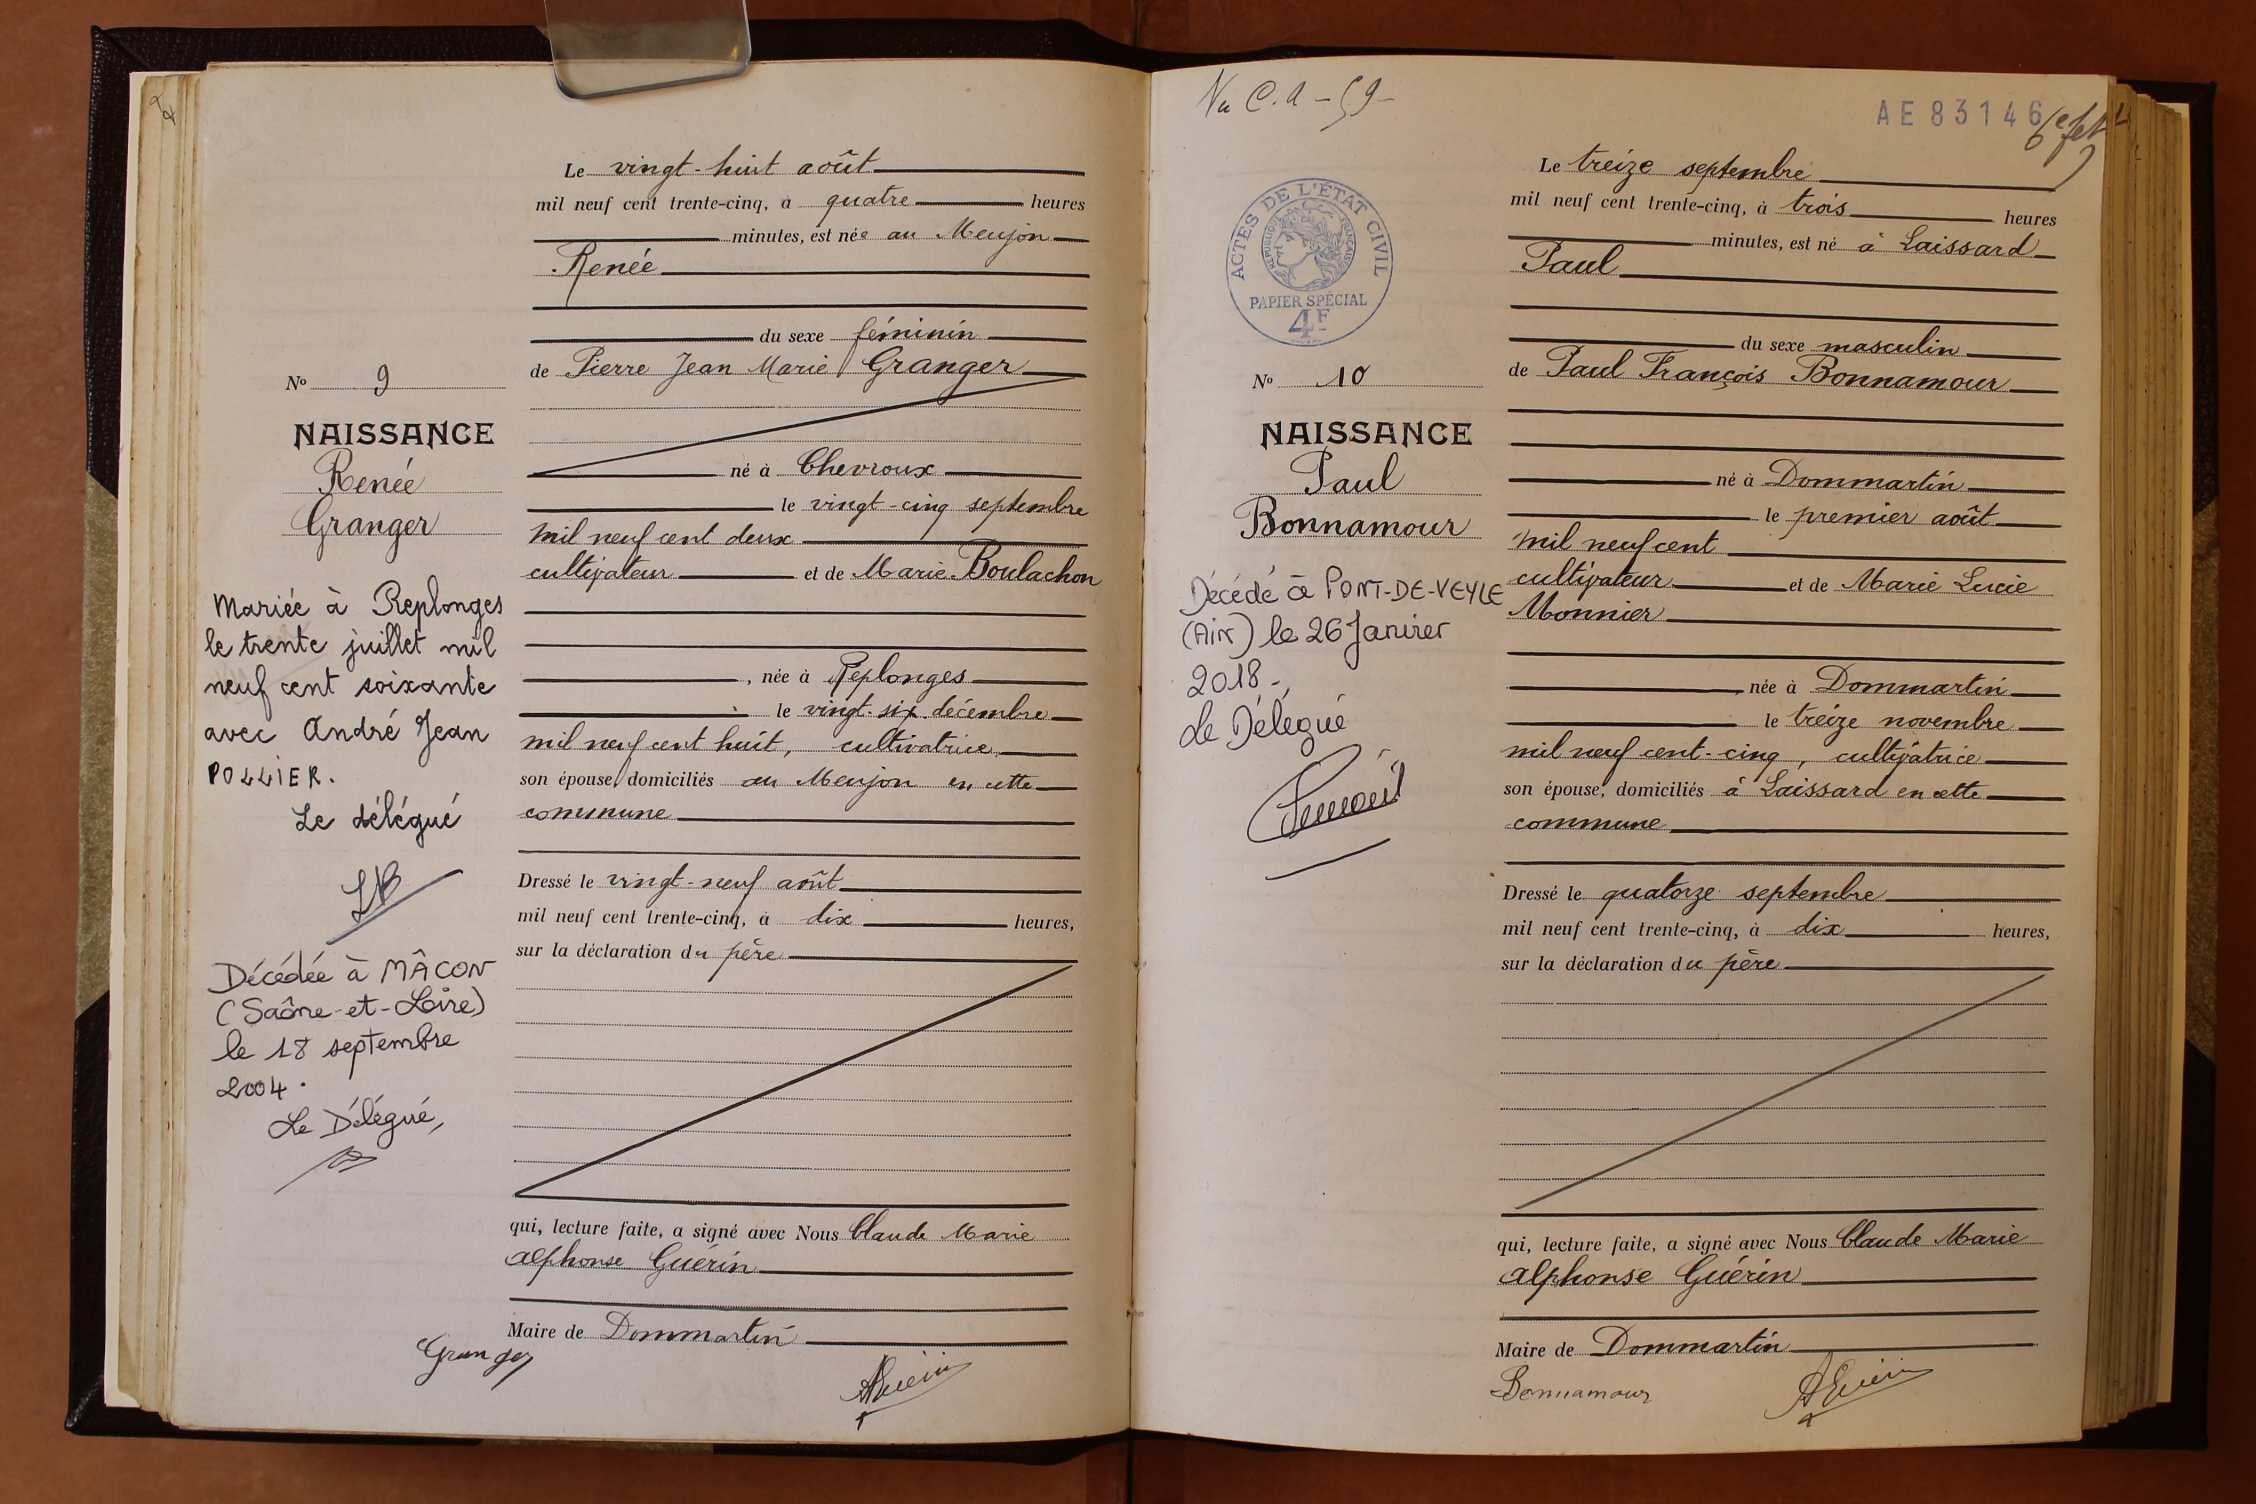 Le vingt-huit août
mil neuf cent trente-cinq, à quatre heures
minutes, est née au Meujon
Renée
du sexe féminin
de Pierre Jean Marie Granger
né à Chevroux
le vingt-cinq septembre
mil neuf cent deux
cultivateur et de Marie Boulachon
, née à Replonges
le vingt-six décembre
mil neuf cent huit, cultivatrice
son épouse, domiciliés au Meujon en cette
commune
Dressé le vingt-neuf août
mil neuf cent trente-cinq, à dix heures,
sur la déclaration du père
qui, lecture faite, a signé avec Nous Claude Marie
Alphonse Guérin
Maire de Dommartin
Granger
AGuérin
No 9
NAISSANCE
Renée
Granger
Mariée à Replonges
le trente juillet mil
neuf cent soixante
avec André Jean
POLLIER.
Le délégué
Décédée à MÂCON
(Saône-et-Loire)
le 18 septembre
2004.
Le Délégué,
Vu C.A - 59 -
AE 83146
Le treize septembre
mil neuf cent trente-cinq, à trois heures
minutes, est né à Laissard
Paul
du sexe masculin
de Paul François Bonnamour
né à Dommartin
le premier août
mil neuf cent
cultivateur et de Marie Lucie
Monnier
née à Dommartin
le treize novembre
mil neuf cent-cinq, cultivatrice
son épouse, domiciliés à Laissard en cette
commune
Dressé le quatorze septembre
mil neuf cent trente-cinq, à dix heures,
sur la déclaration du père
qui, lecture faite, a signé avec Nous Claude Marie
Alphonse Guérin
Maire de Dommartin
Bonnamour
AGuérin
ACTES DE L'ÉTAT CIVIL
RÉPUBLIQUE FRANÇAISE
PAPIER SPÉCIAL
4F
No 10
NAISSANCE
Paul
Bonnamour
Décédé à PONT-DE-VEYLE
(Ain) le 26 Janvier
2018 -
Le Délégué